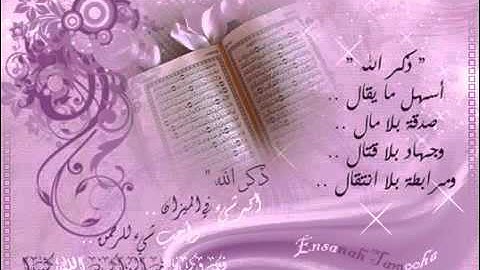 " ذكر الله "
أسهل ما يقال ..
صدقة بلا مال ..
وجهاد بلا قتال ..
ومرابطة بلا انتقال ..
ذكر الله "
أكبر شيء في الميزان ..
وأحب شيء للرحمن ..
Ensanah Tamooha